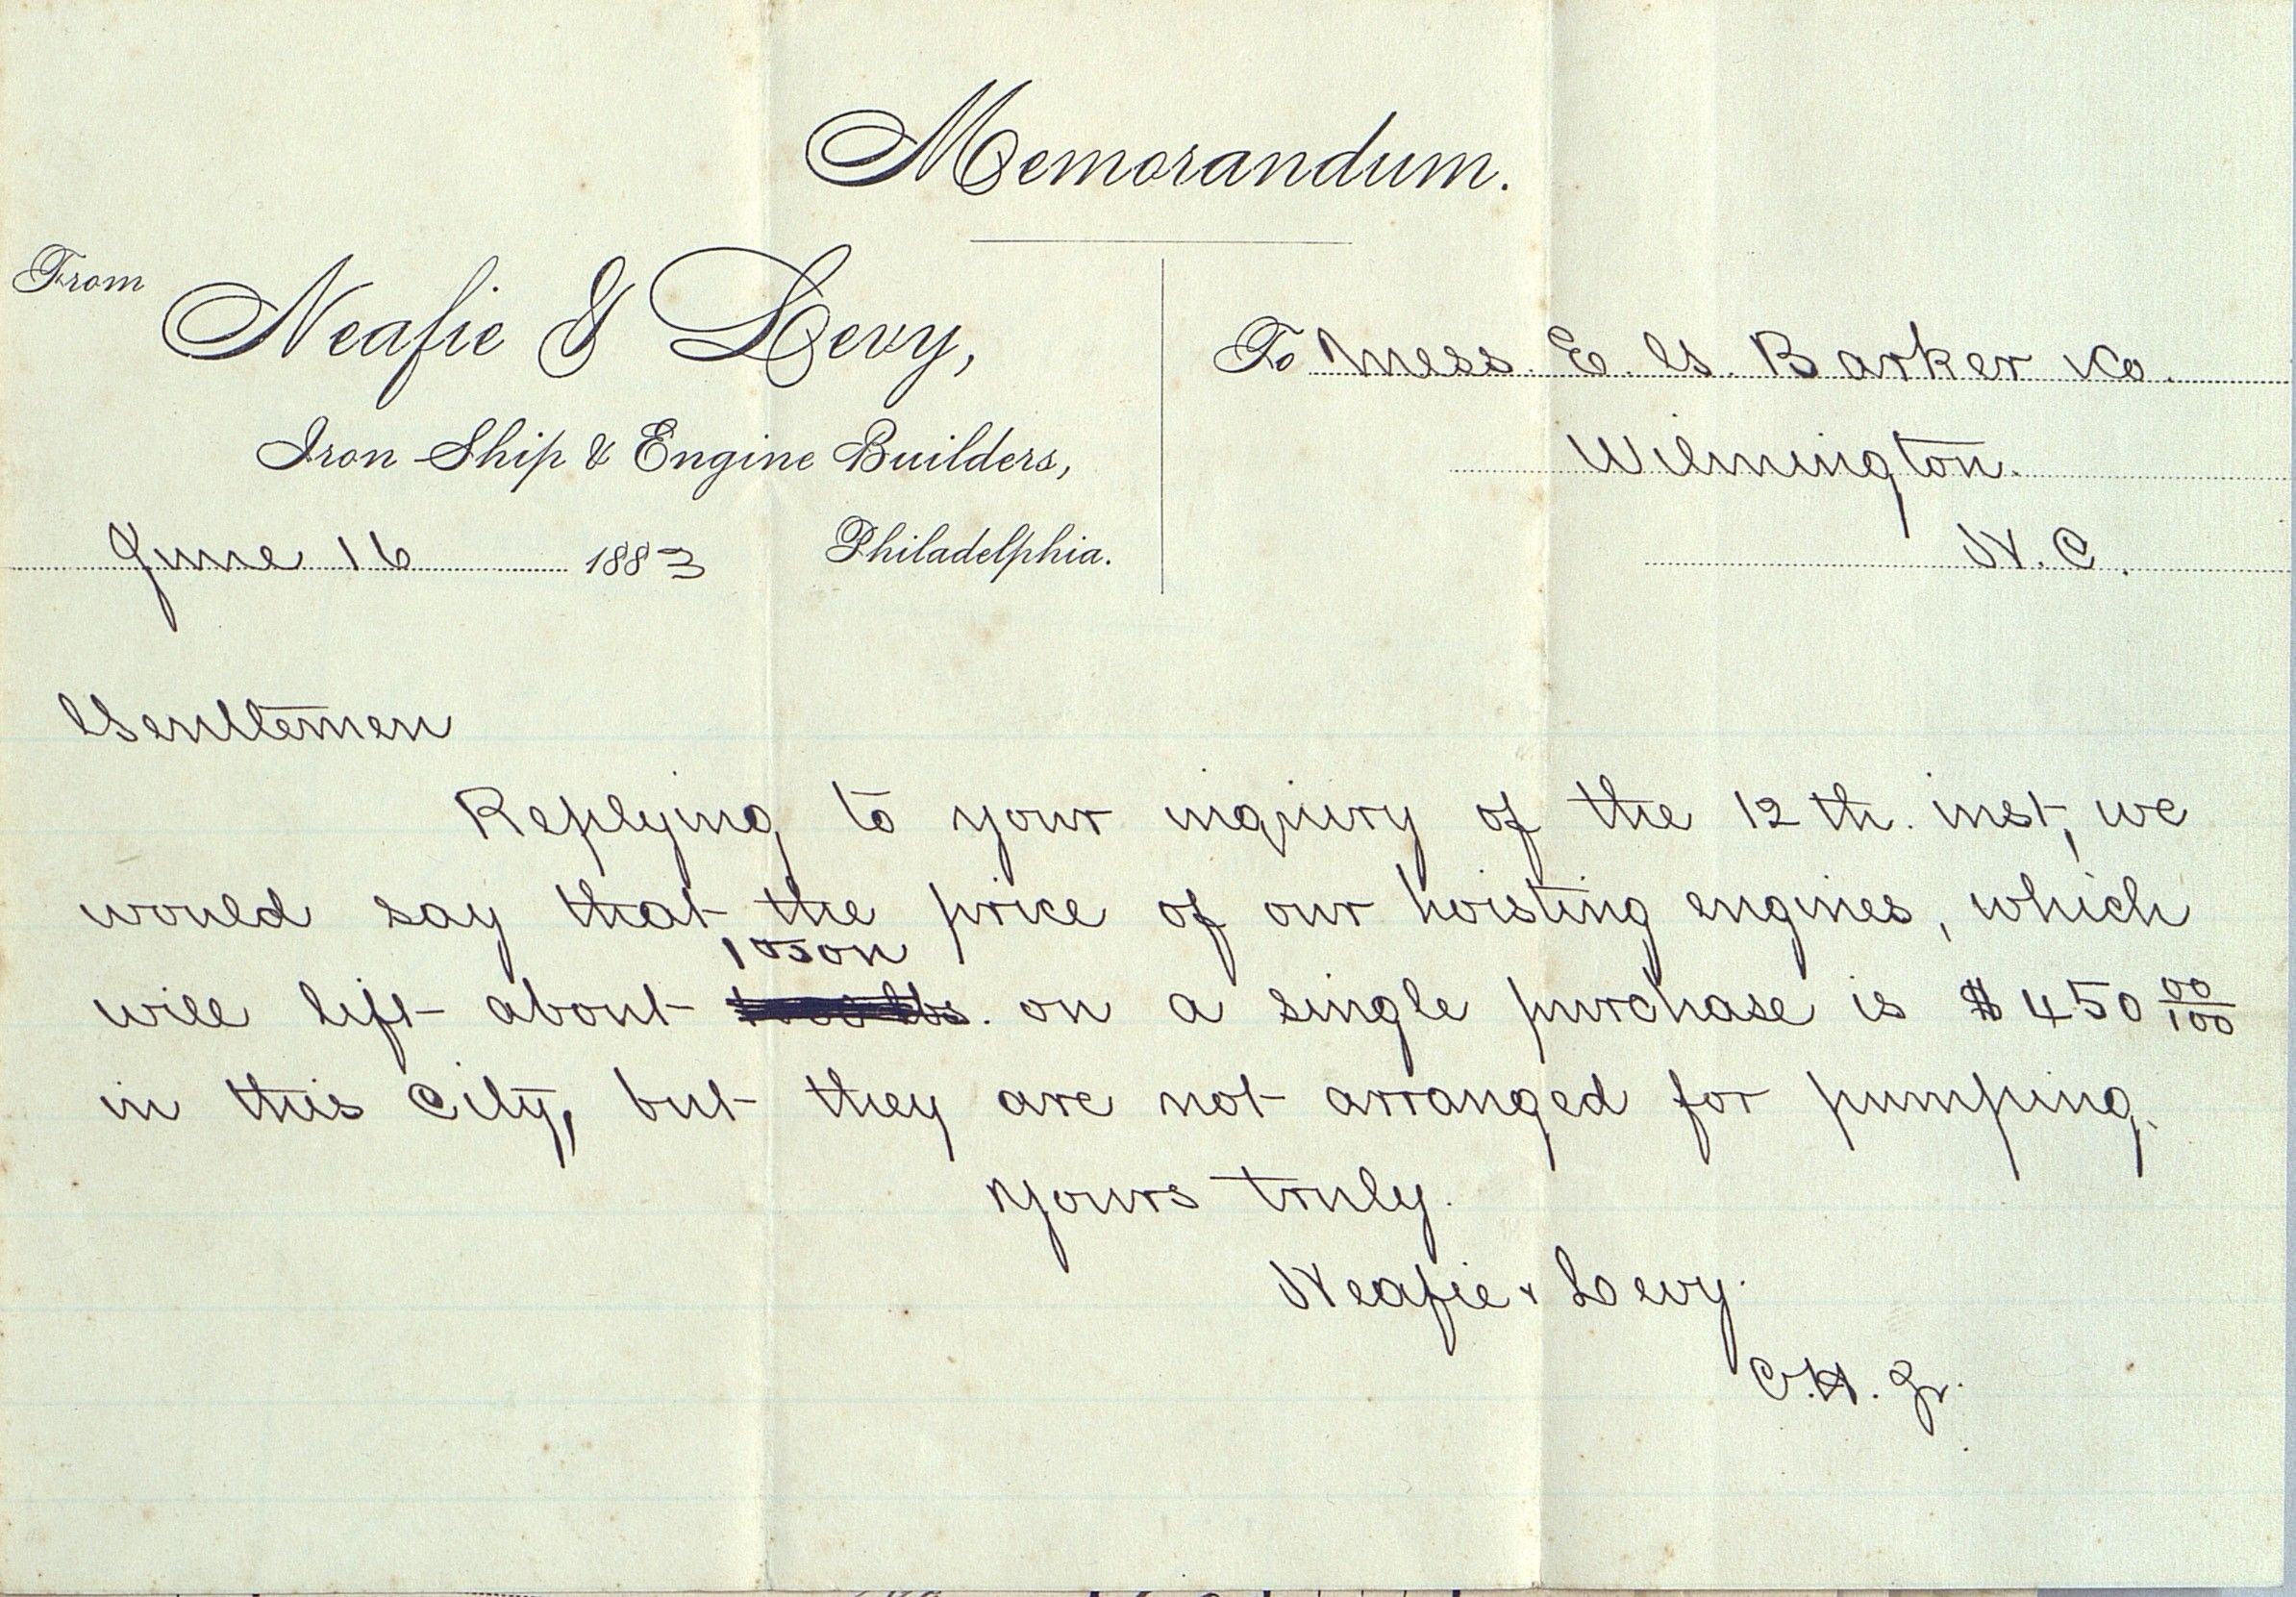 Memorandum.
From Neafie & Levy,
Iron Ship & Engine Builders,
June 16 1883 Philadelphia.
To Mess. E. G. Barker &Co.
Wilmington.
N. C.
Gentlemen
Replying to your inquiry of the 12th. inst, we
would say that the price of our hoisting engines, which
1 ton
will lift about on a single purchase is $450 00/100
in this City, but they are not arranged for pumping.
Yours truly.
Neafie & Levy.